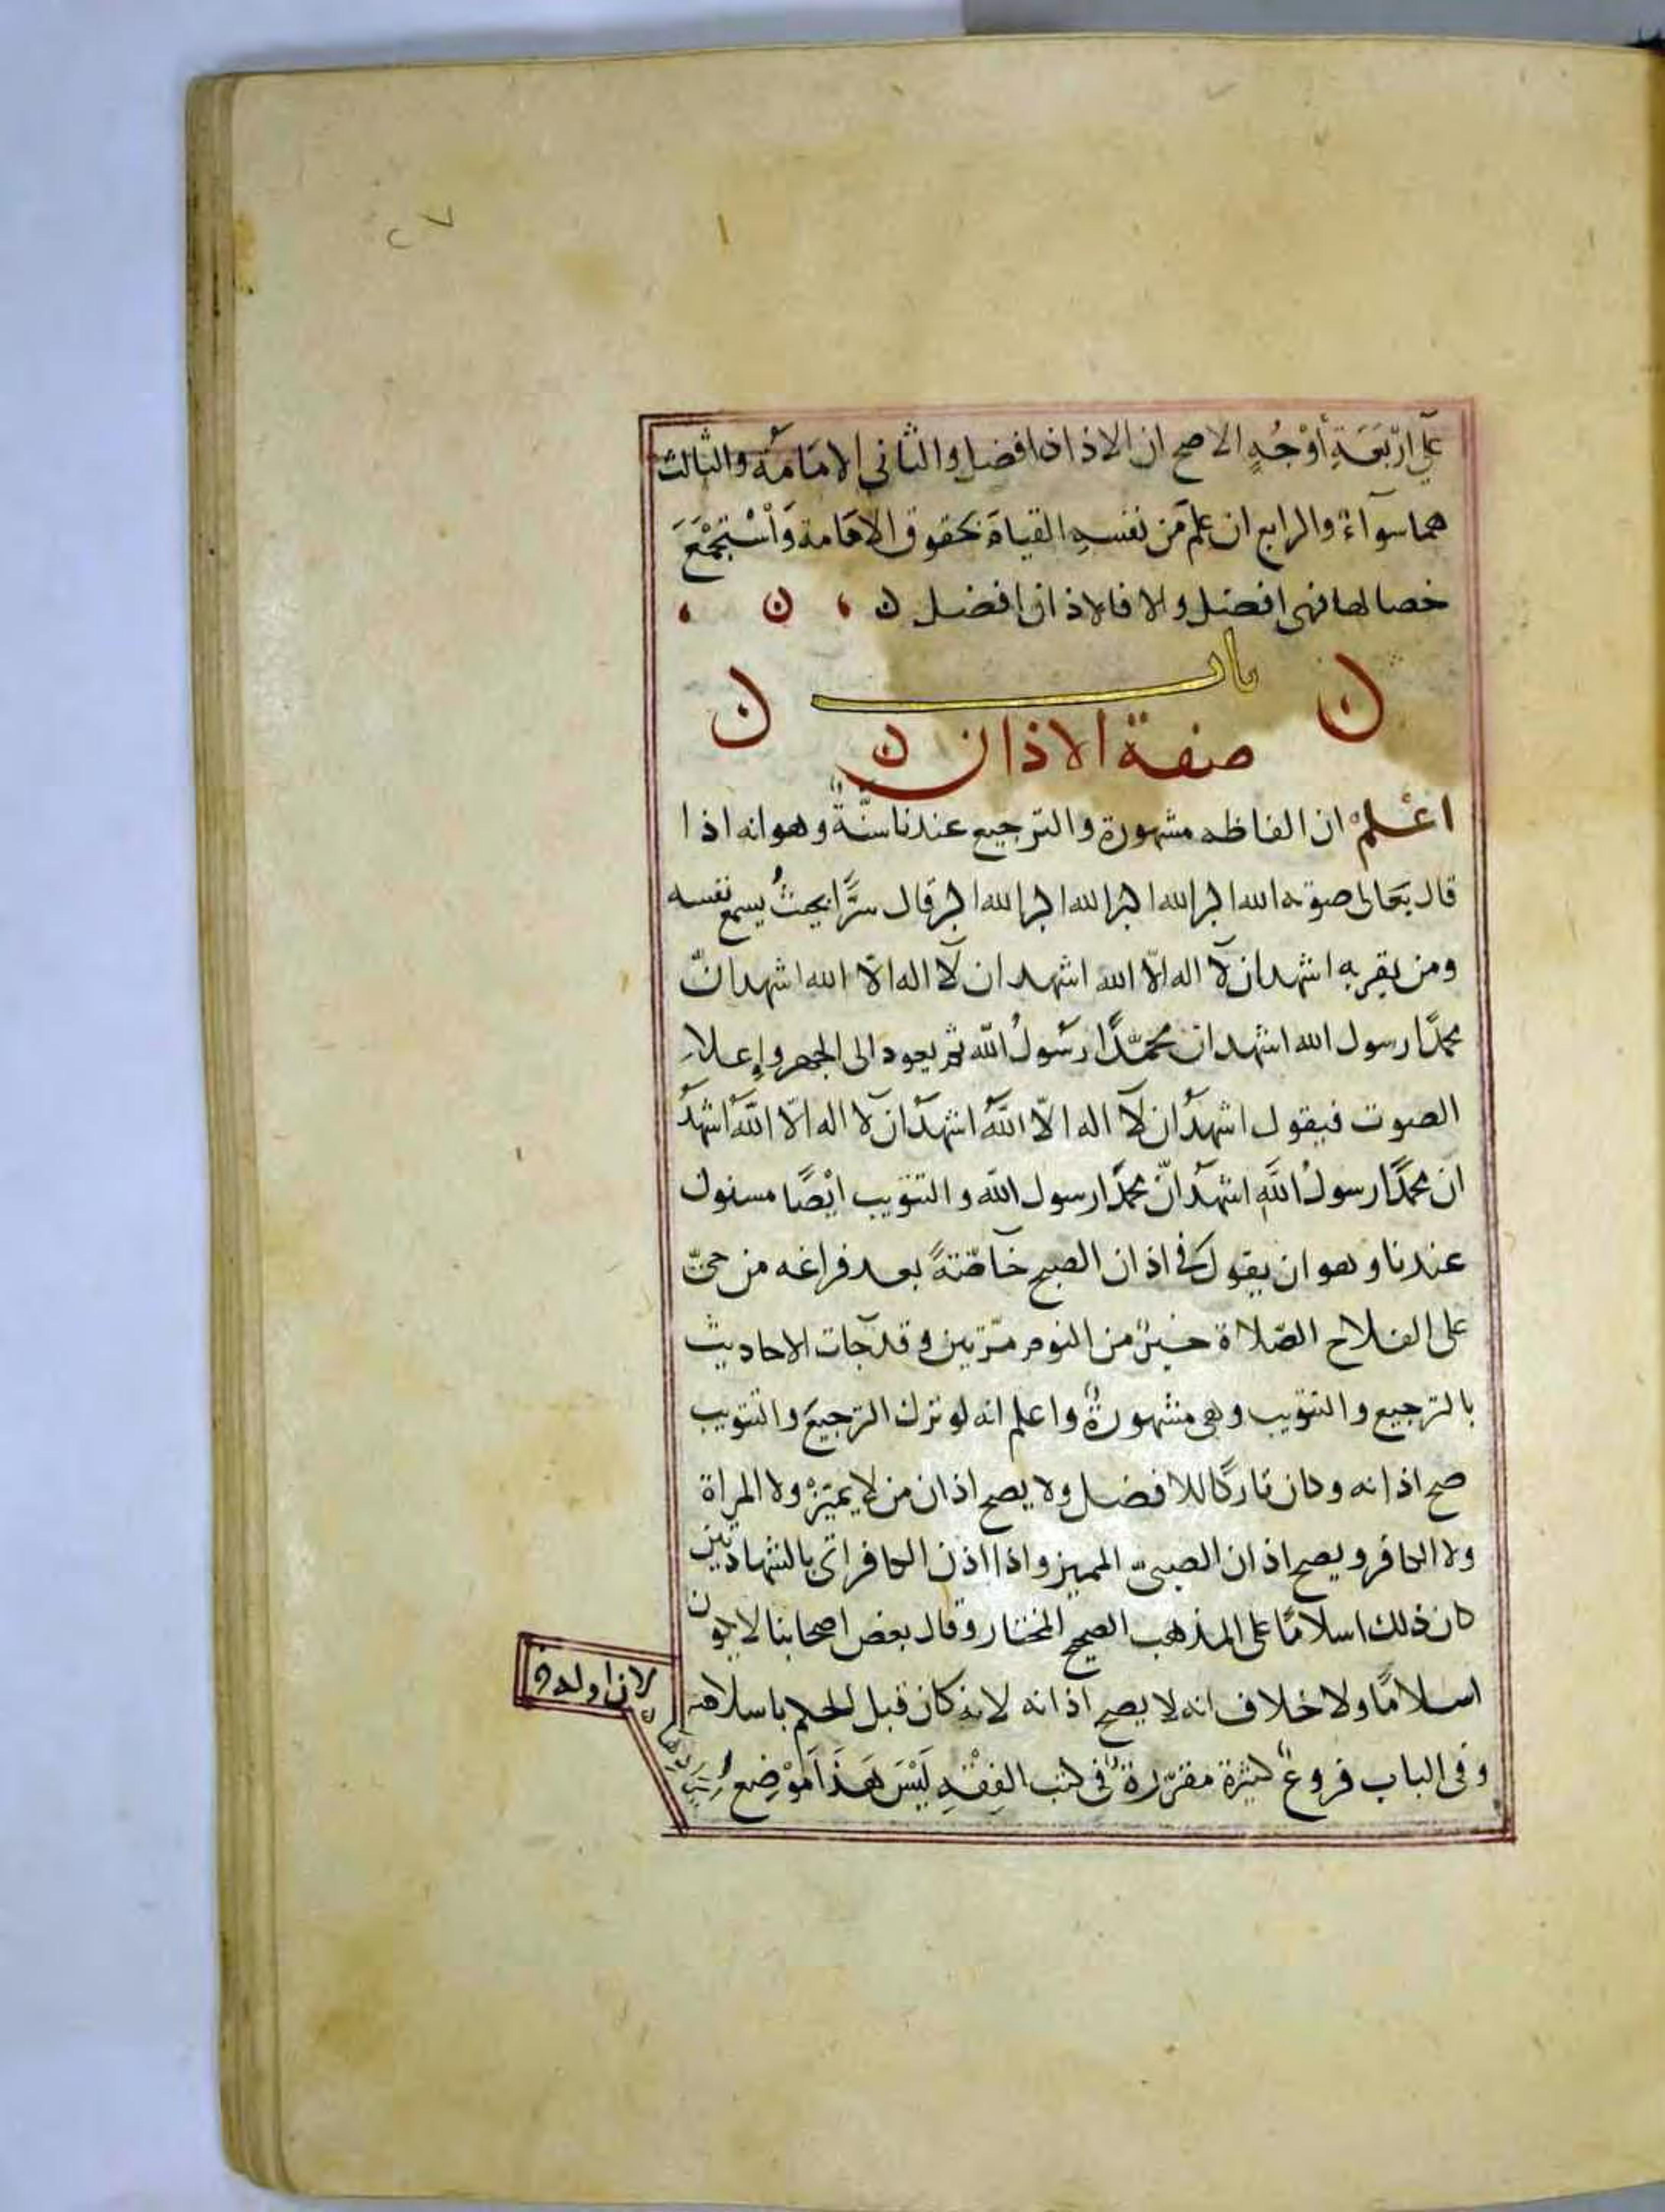 ٢٧
على ارْبَعَةِ أوْجُهٍ الاصح ان الاذان افضل والثاني الامَامَةُ والثالث
هما سوآءٌ والرابع ان علم مَن نفسهِ القيامَ بحقوق الامامة وَاسْتَجْمَعَ
خصالها فهى افضل والا فالاذان افضل ن ن
باب
ن صفة الاذان ن ن
اعْلمْ ان الفاظه مشهورة والترجيع عندنا سنَّةٌ وهو انه اذا
قال بعَالى صوته الله اكبر الله اكبر الله اكبر الله اكبر قال سرًّا بحيثُ يسمع نفسه
ومن بقربه اشهد ان لآ اله الّا الله اشهد ان لآ اله الّا الله اشهد انّ
محمدًا رسول الله اشهد ان محمّدًا رسُولُ الله ثم يعود الى الجهر وإعلاءِ
الصوت فيقول اشهدُ ان لآ اله الّا اللهُ اشهدُ ان لآ اله الّا اللهُ اشهدُ
انّ محمدًا رسولُ اللهِ اشهدُ انّ محمدًا رسول الله والتثويب ايْضًا مسنون
عندنا وهو ان يقول فى اذان الصبح خآصّةً بعد فراغه من حىّ
على الفلاح الصّلاة خيرٌ من النوم مرّتين وقد جآت الاحاديث
بالترجيع والتثويب وهى مشهورةٌ واعلم انه لو ترك الترجيعَ والتثويب
صح اذانه وكان تاركًا للافضل ولا يصح اذان من لا يميّزُ ولا المراة
ولا الكافر ويصح اذان الصبىّ المميز واذا اذن الكافر اتى بالشهادتين
كان ذلك اسلامًا على المذهب الصحيح المختار وقال بعض اصحابنا لا يكون
اسلامًا ولا خلاف انه لا يصح اذانه لانه كان قبل الحكم باسلامه
لان اوله
وفى الباب فروعٌ كثيرة مقرّرةٌ فى كتب الفِقْهِ لَيْسَ هَذَا مَوْضِعُ